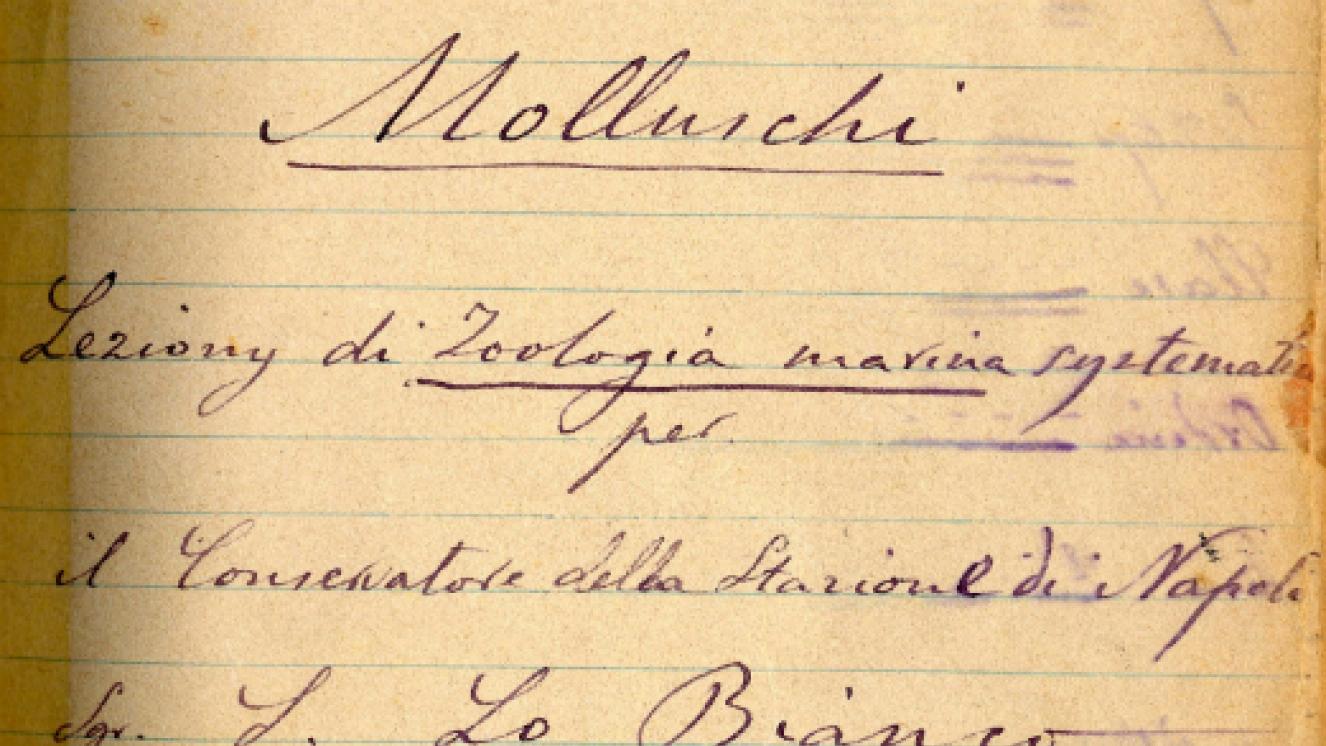 Molluschi
Leziony di Zoologia marina systemati
per
il Conservatore della Stazione di Napoli
Sgr. S. Lo Bianco